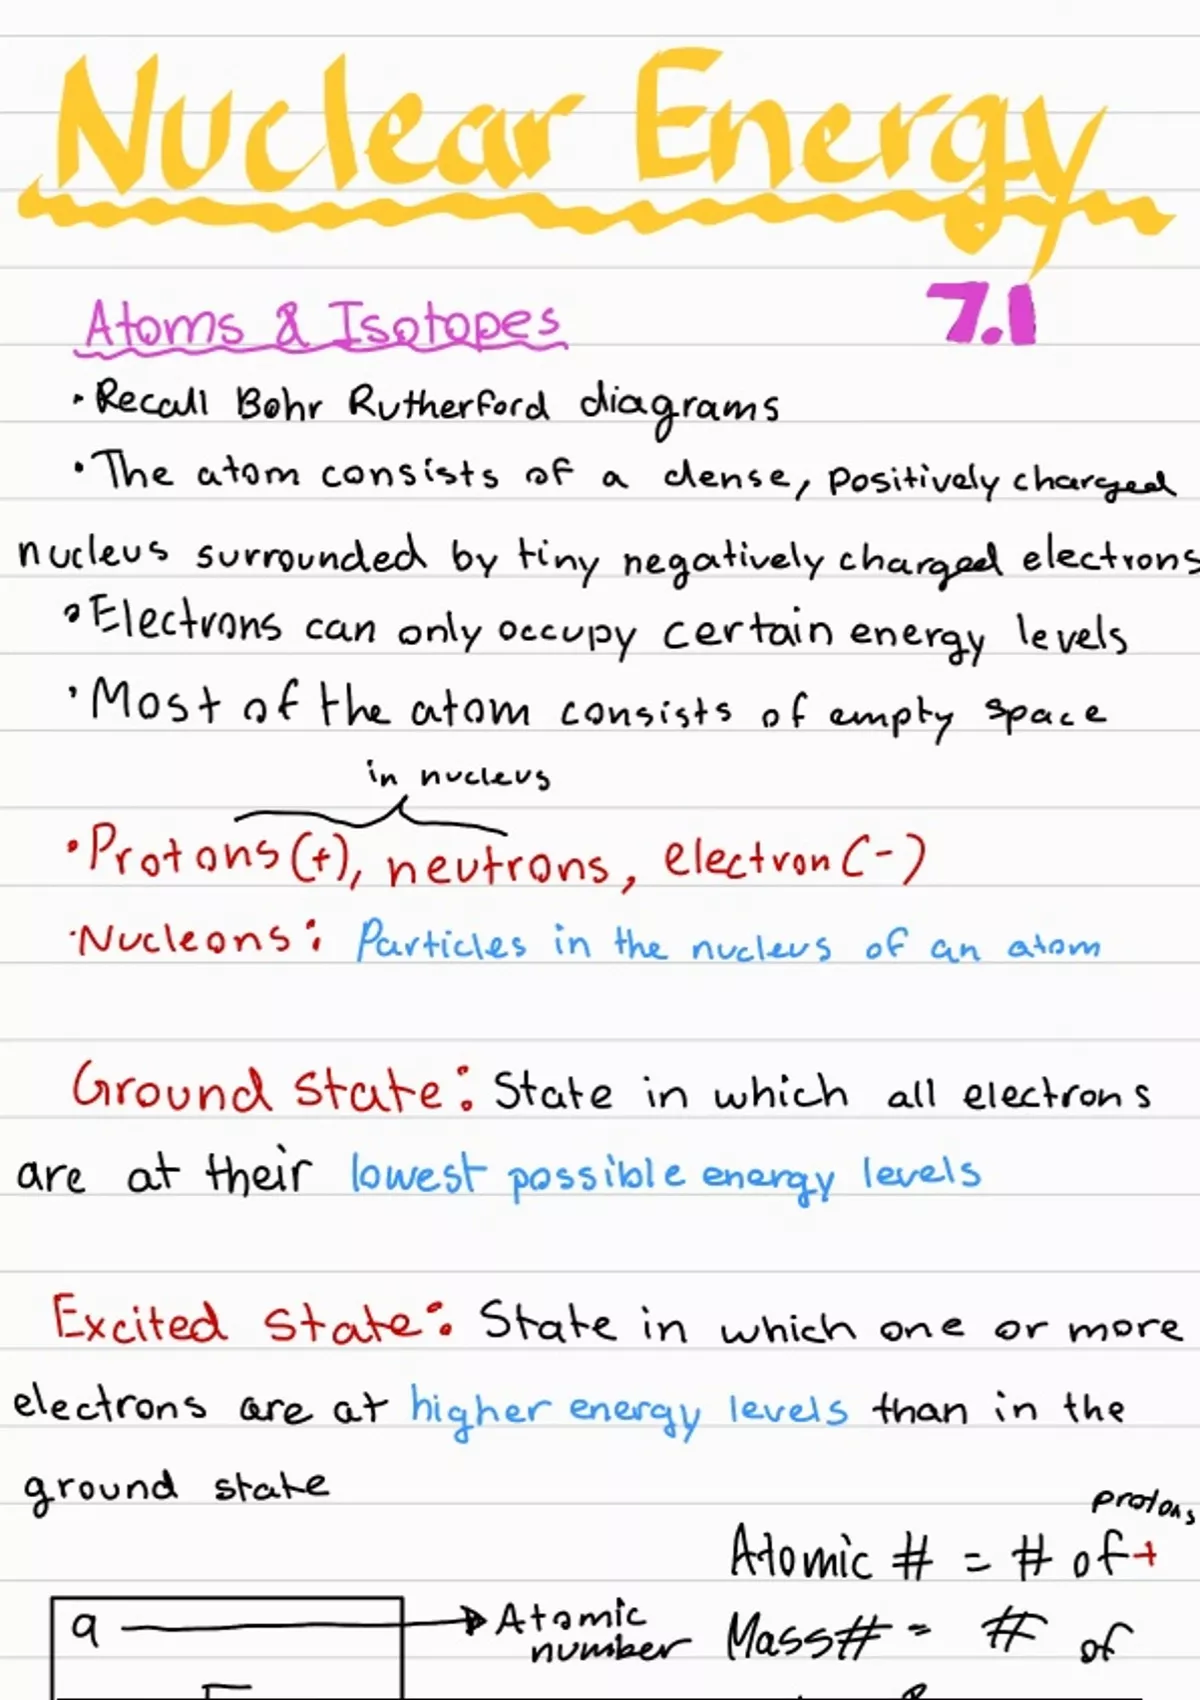 Nuclear Energy
Atoms & Isotopes 7.1
• Recall Bohr Rutherford diagrams
• The atom consists of a dense, positively charged
nucleus surrounded by tiny negatively charged electrons
• Electrons can only occupy certain energy levels
• Most of the atom consists of empty space
in nucleus
• Protons (+), neutrons, electron (-)
• Nucleons: Particles in the nucleus of an atom
Ground State: State in which all electrons
are at their lowest possible energy levels
Excited State: State in which one or more
electrons are at higher energy levels than in the
ground state
protons
Atomic # = # of +
9 Atomic
number
Mass# = # of